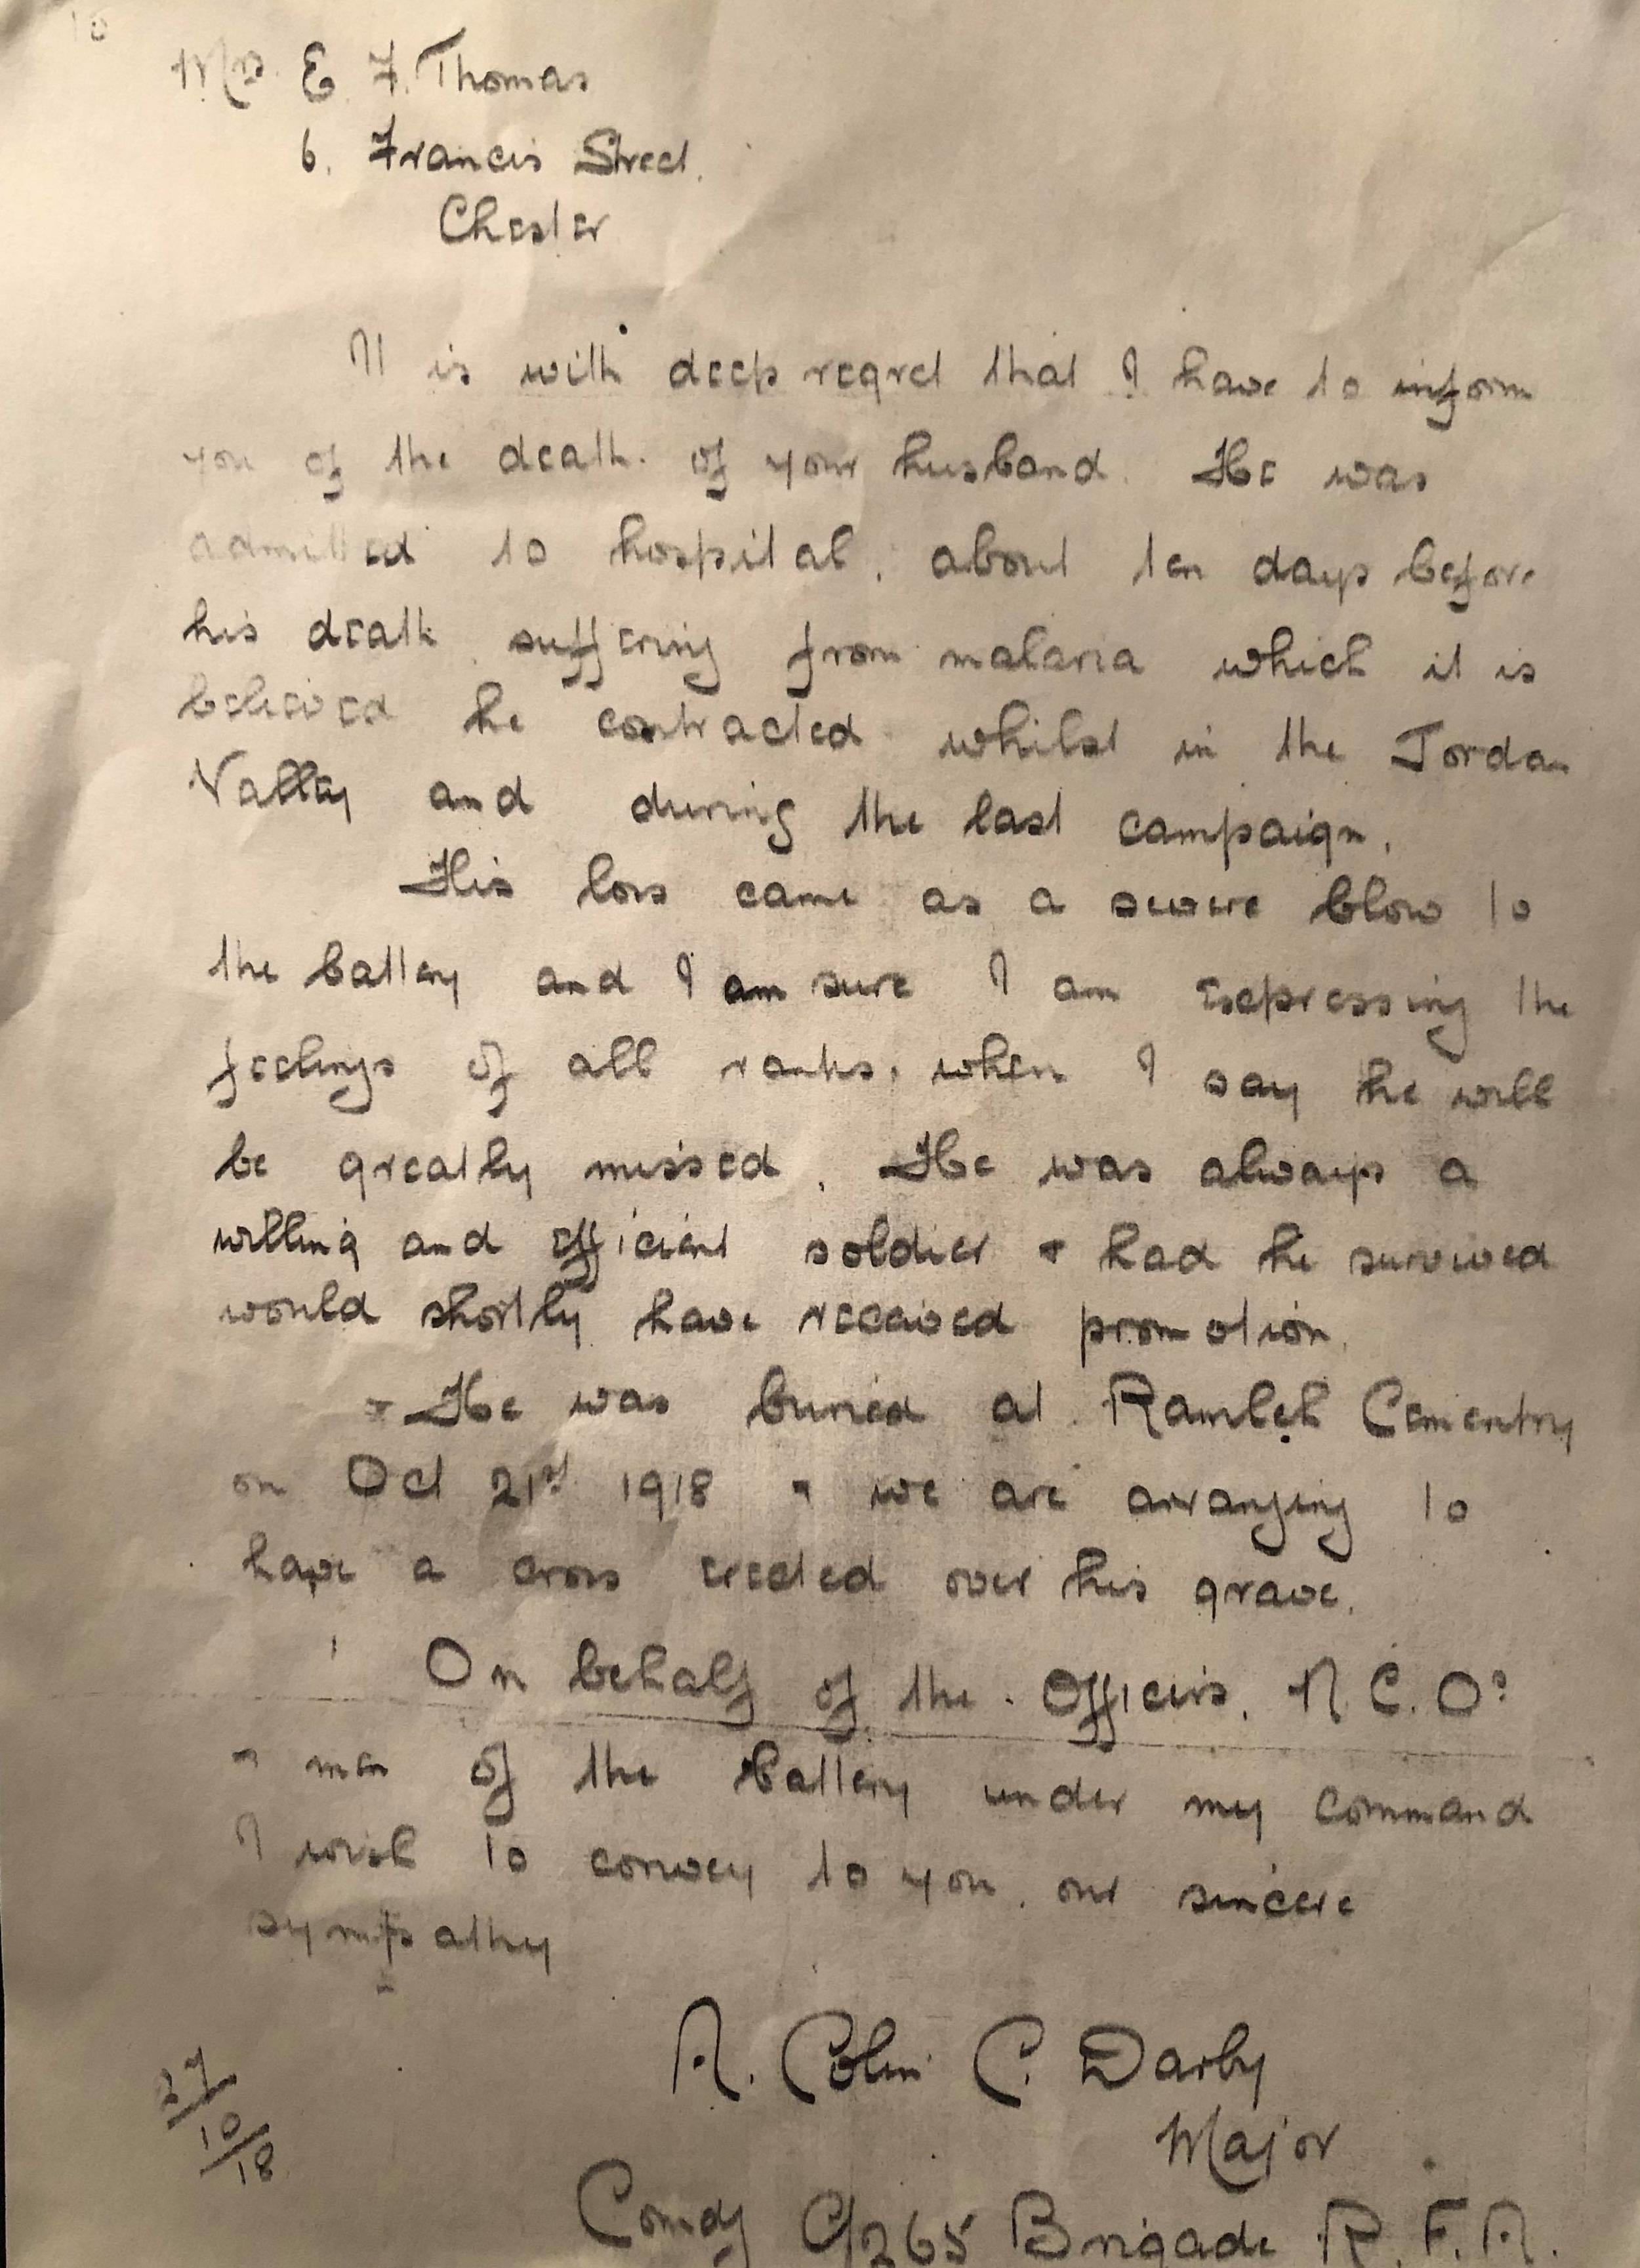 Mrs. E. F. Thomas
6. Francis Street.
Chester
It is with deep regret that I have to inform
you of the death of your husband. He was
admitted to hospital, about ten days before
his death suffering from malaria which it is
believed he contracted whilst in the Jordan
Valley and during the last campaign.
His loss came as a severe blow to
the battery and I am sure I am expressing the
feelings of all ranks, when I say he will
be greatly missed. He was always a
willing and efficient soldier & had he survived
would shortly have received promotion.
He was buried at Ramleh Cementry
on Oct 21st 1918 & we are arranging to
have a cross erected over his grave.
On behalf of the Officers, N.C.Os
& men of the battery under my command
I wish to convey to you, our sincere
sympathy
A. Colin C. Darby
Major
27/10/18
Comdg C/265 Brigade R.F.A.